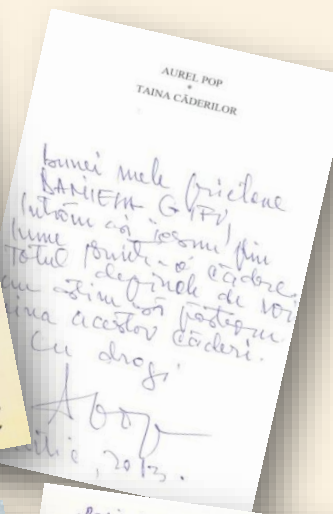 AUREL POP
*
TAINA CĂDERILOR
bunei mele prietene
DANIELA GÎFU
Intrăm și ieșim din
lume printr-o cădere,
Totul depinde de noi
cum știm să păstrăm
taina acestor căderi.
Cu drag,
APop
2013.